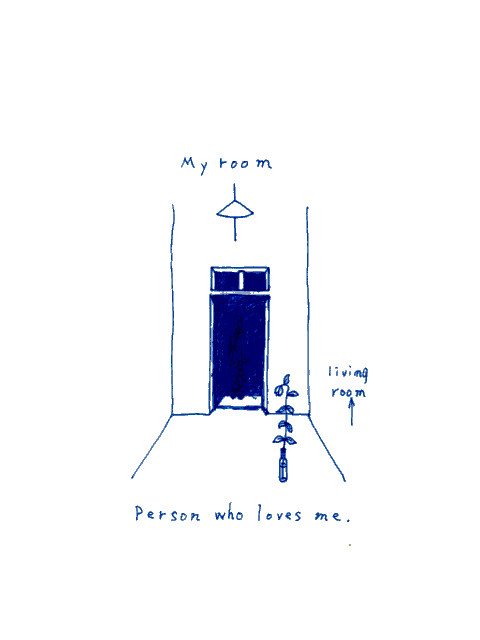 My room
living
room
Person who loves me.